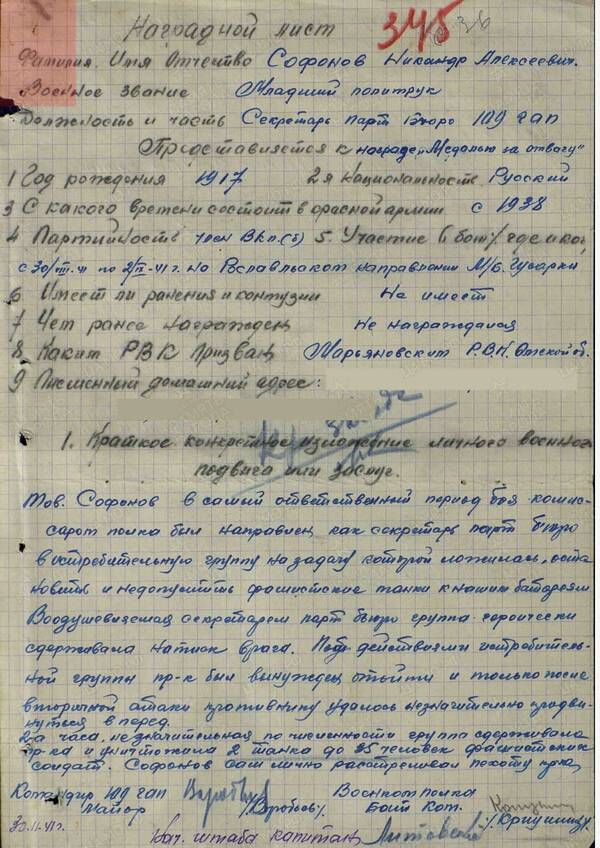 345
36
Наградной лист
Фамилия, Имя Отчество Софонов Никандр Алексеевич.
Военное звание Младший политрук
Должность и часть Секретарь парт бюро 109 гап
Представляется к награде „Медалью за отвагу"
1 Год рождения 1917 2я Национальность Русский
3 С какого времени состоит в красной армии с 1938
4 Партийность член ВКП(б) 5. Участие в боях где и ког
по на Рославльском направлении
6 Имеет ли ранения и контузии Не имеет
7 Чем ранее награжден Не награждался
8 Каким РВК призван Марьяновским Р.В.К. Омской об.
9 Писменный домашний адрес:
1. Краткое конкретное изложение личного военного
подвига или заслуг.
Тов. Софонов в самый ответственный период боя комис-
саром полка был направлен как секретарь парт бюро
в истребительную группу на задачу которой ложилась, оста
новить и недопустить фашистские танки к нашим батареям
Воодушевляемая секретарем парт бюро группа героически
сдерживала натиск врага. Под действиями истребитель-
ной группы пр-к был вынужден отойти и только после
вторичной атаки противнику удалось незначительно продви-
нуться вперед.
2-а часа, незначительная по численности группа сдерживала
пр-ка и уничтожила 2 танка до 35 человек фашистских
солдат. Софонов сам лично расстреливал пехоту
Командир 109 гап Военком полка
Майор /Воробьев/ Бат Ком.
Нач. штаба капитан